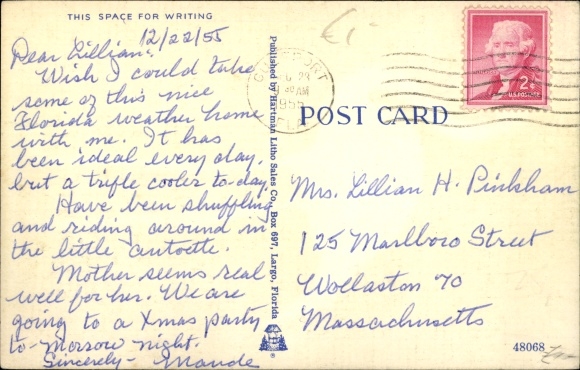 THIS SPACE FOR WRITING
12/22/55
Dear Lillian:
Wish I could take
some of this nice
Florida weather home
with me. It has
been ideal every day,
but a trifle cooler to-day.
Have been shuffling
and riding around in
the little autoette.
Mother seems real
well for her. We are
going to a Xmas party
to-morrow night.
Sincerely - Maude
Published by Hartman Litho Sales Co., Box 697, Largo, Florida
1955
2¢
U.S. POSTAGE
POST CARD
Mrs. Lillian H. Pinkham
125 Marlboro Street
Wollaston 70
Massachusetts
48068